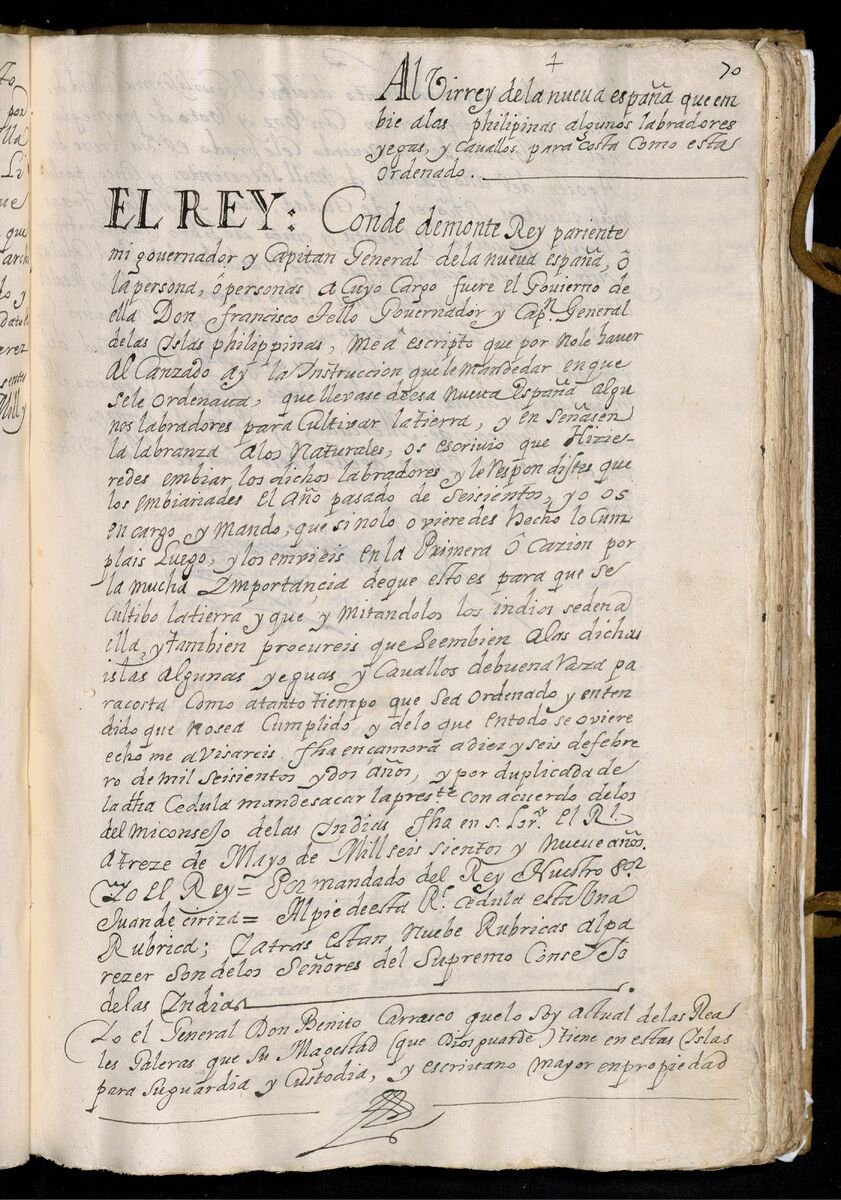 70
Al Virrey de la nueva españa que em
bie alas philipinas algunos labradores
yegas, y cavallos para costa como esta
ordenado.
EL REY: Conde demonte Rey pariente
mi governador y Capitan General dela nueva españa, ó
la persona, ó personas a Cuyo Cargo fuere el Govierno de
ella Don francisco tello Governador y Capⁿ General
delas Islas philippinas, me a escripto que por nole haver
Al Canzado ay la Instruccion quele mande dar en que
sele ordenaua, que llevase deesa nueva España algu
nos labradores para Cultivar latierra, y en señasen
la labranza alos Naturales, os escrivio que Hizie-
redes embiar los dichos labradores y le Respon distes que
los embiariades el año pasado de seisientos, yo os
en cargo y Mando, que si nolo o vieredes hecho lo Cum
plais Luego, y los emvieis en la Primera Ocazion por
la mucha Importancia deque esto es para que se
cultibo latierra y que y mitandolos los indios seden a
ella, y tambien procureis que se embien alas dichas
islas algunas yeguas y Cavallos debuena raza pa
racosta Como atanto tiempo que sea ordenado y enten
dido que nosea Cumplido y delo que entodo se oviere
echo me a visareis fha en çamora a diez y seis defebre
ro de mil seisientos ydos años, y por duplicada de
la dha Cedula mandesacar la preste con acuerdo delos
del miconsejo delas Indias fha en s. Lorº. El Rl.
a treze de Mayo de Mill seis sientos y nueve años.
Yo el Rey = Por mandado del Rey Nuestro Sor
Juan de ciriza = Al pie deesta Rl. cedula esta Una
Rubrica; Yatras estan nuebe Rubricas alpa
rezer son delos Señores del Supremo Consejo
delas Indias
Yo el General Don Benito Carrasco quelo soy actual delas Rea
les Galeras que su Magestad (que Dios guarde) tiene en estas Islas
para suguardia y Custodia, y escrivano mayor enpropiedad